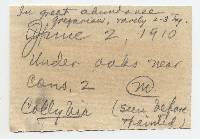 In great abundance
gregarious, rarely 2-3 tog.
June 2, 1910
Under oaks near
Cans, 2 (M)
Collybia (Seen before
& painted)